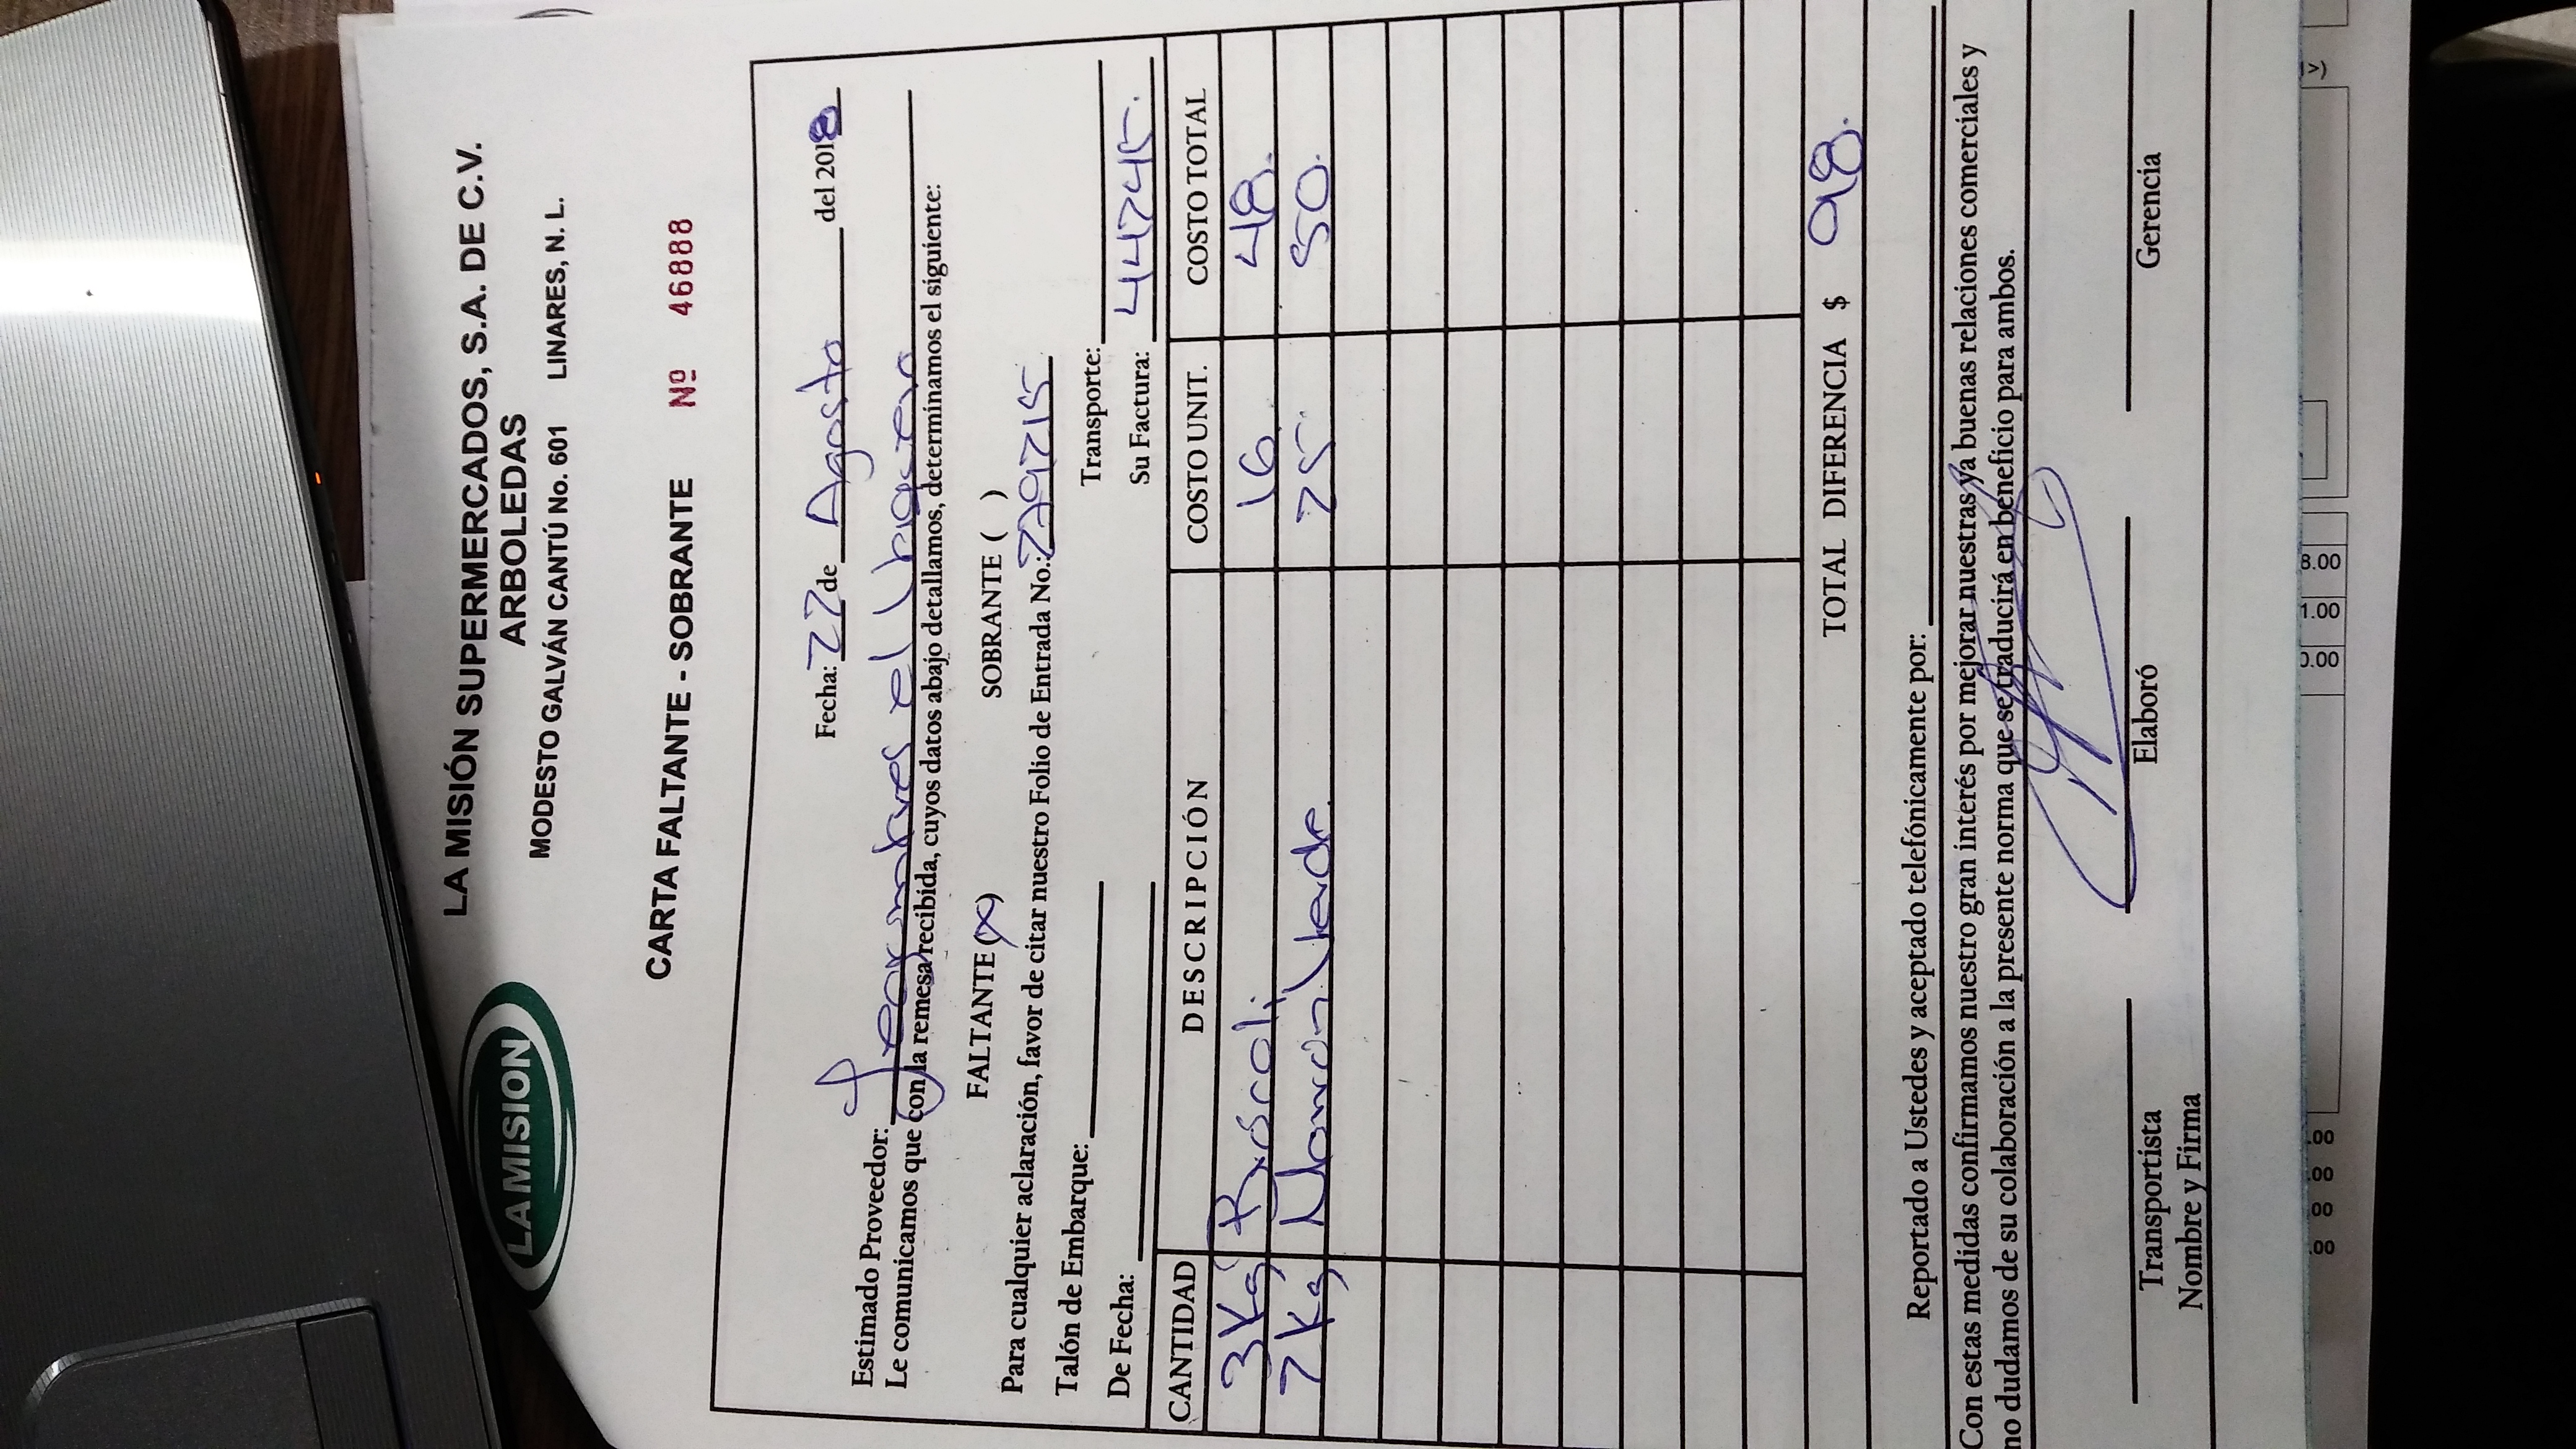 LA MISION
LA MISIÓN SUPERMERCADOS, S.A. DE C.V.
ARBOLEDAS
MODESTO GALVÁN CANTÚ No. 601 LINARES, N. L.
CARTA FALTANTE - SOBRANTE Nº 46888
Fecha: 22 de Agosto del 2018
Estimado Proveedor: el
Le comunicamos que con la remesa recibida, cuyos datos abajo detallamos, determinamos el siguiente:
FALTANTE (X) SOBRANTE ( )
Para cualquier aclaración, favor de citar nuestro Folio de Entrada No.: 279215
Talón de Embarque: Transporte:
De Fecha: Su Factura: 44245.
CANTIDAD DESCRIPCIÓN COSTO UNIT. COSTO TOTAL
3 Kg Brócoli 16 48.
2 Kg Verde 25 50.
TOTAL DIFERENCIA $ 98.
Reportado a Ustedes y aceptado telefónicamente por:
Con estas medidas confirmamos nuestro gran interés por mejorar nuestras ya buenas relaciones comerciales y
no dudamos de su colaboración a la presente norma que se traducirá en beneficio para ambos.
Transportista Elaboró Gerencia
Nombre y Firma
.00 .00 .00 .00 0.00 1.00 8.00